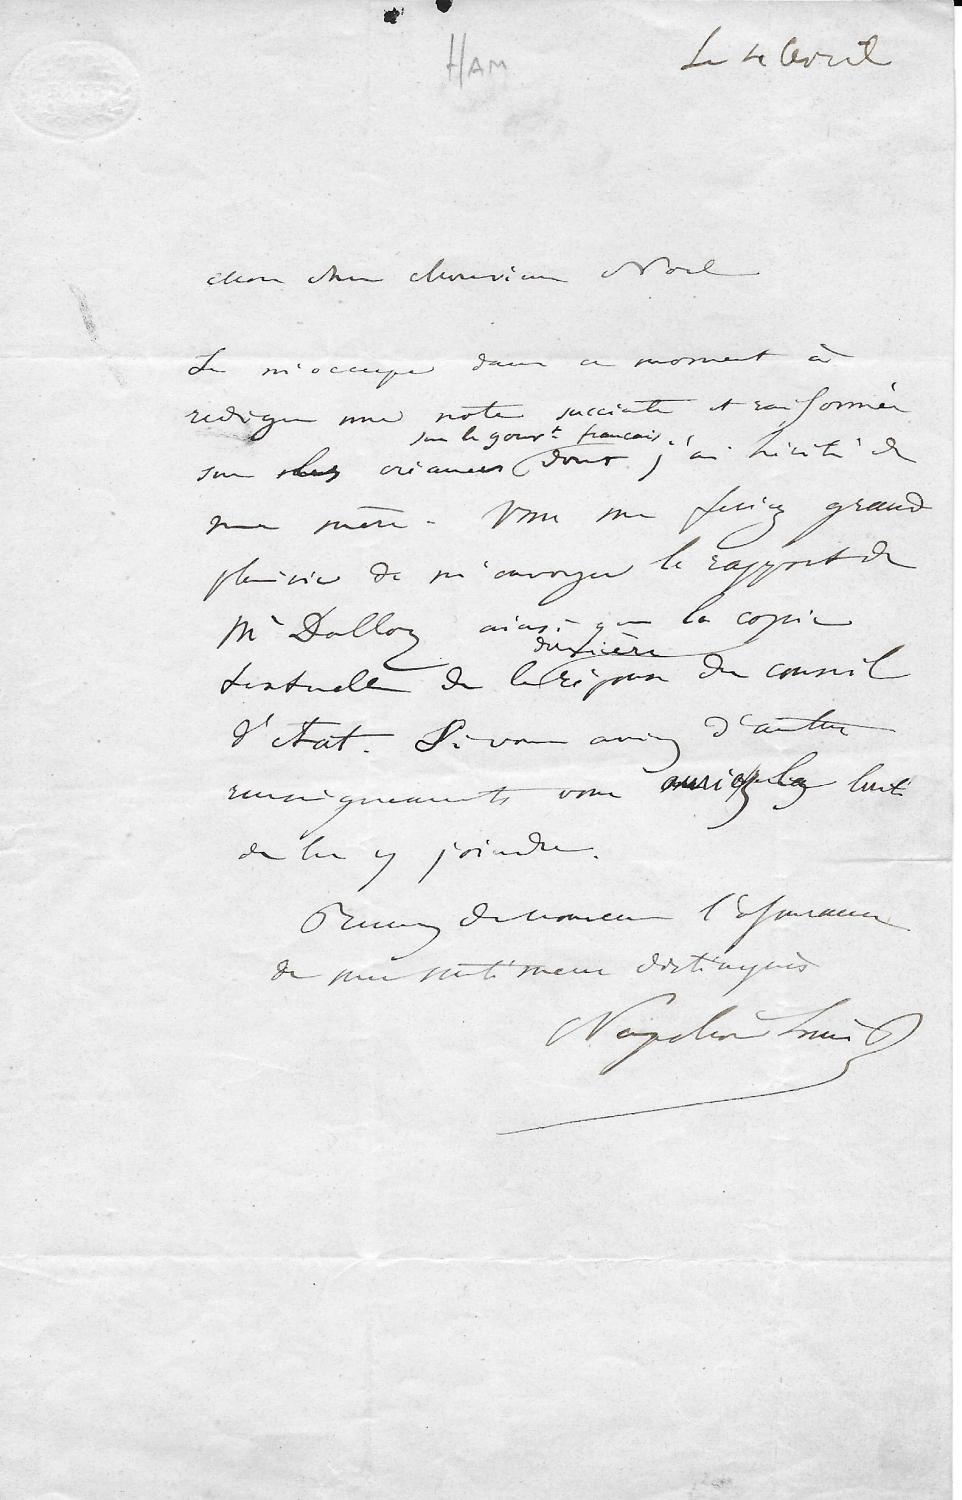 HAM
Le 4 Avril
Mon cher Monsieur Noel
Je m'occupe dans ce moment à
rediger une note succincte et raisonnée
sur le gouvt francais
sur les créances dont j'ai hérité de
ma mère. Vous me feriez grand
plaisir de m'envoyer le rapport de
Mr Dalloz ainsi que la copie
dernière
textuelle de la réponse du conseil
d'etat. Si vous aviez d'autres
renseignements vous auriez la bonté
de les y joindre.
Recevez de nouveau l'assurance
de mes sentimens distingués
Napoléon Louis B